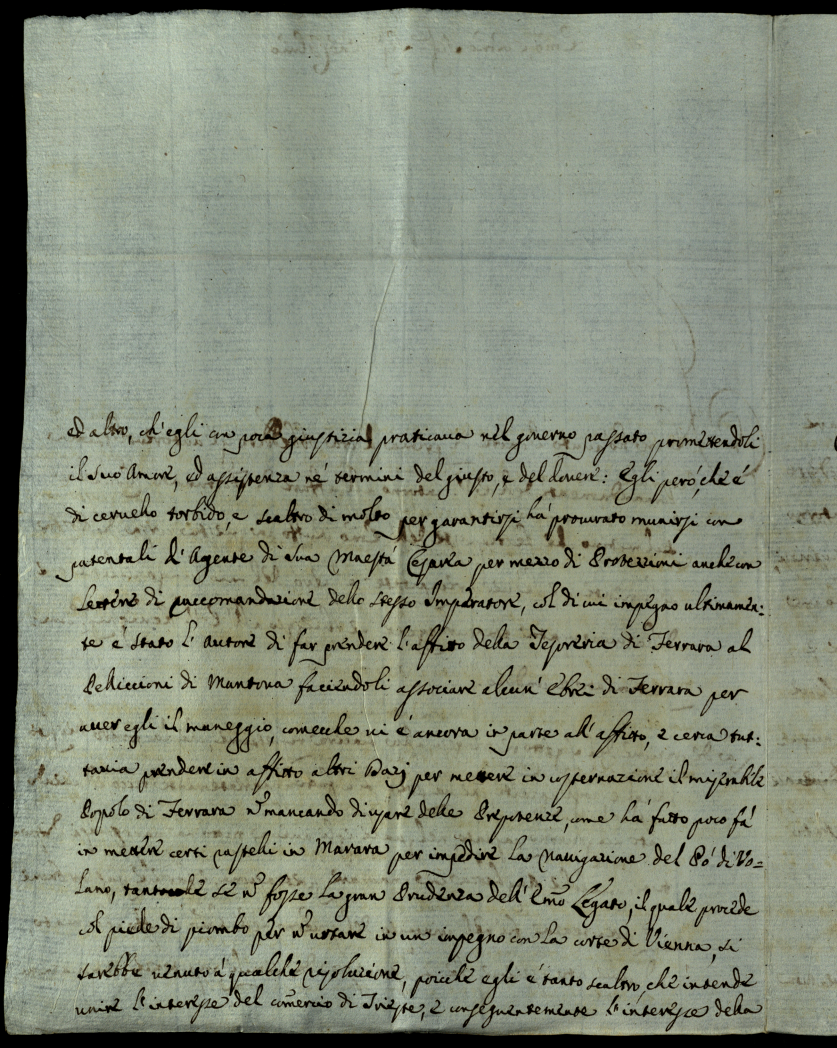 ed altro, ch'egli con poca giustizia praticava nel governo passato promettendoli
il suo Amore, ed assistenza né termini del giusto, e del dovere: Egli però, che é
di cervello torbido, e scaltro di molto per garantirsi há procurato munirsi con
patentali d'Agente di Sua Maestá Cesarea per mezzo di Protezzioni anche con
Lettere di raccomandazione dello stesso Imperatore, col di cui impegno ultimamen:
te é stato l'Autore di far prendere l'affitto della Tesoreria di Ferrara al
Pelliccioni di Mantova faciendoli associare alcuni Ebrei di Ferrara per
aver egli il maneggio, comecche vi é ancora in parte all'affitto, e cerca tut:
tavia prendere in affitto altri Dazj per mettere in costernazione il miserabile
Popolo di Ferrara nō mancando di usare delle Prepotenze, come há fatto poco fá
in mettere certi rastelli in Marara per impedire la navigazione del Pó di Vo=
lano, tantoche se nō fosse la gran Prudenza dell'Emō Legato, il quale procede
col piede di piombo per nō urtare in un impegno con la corte di Vienna, si
sarebbe venuto á qualche risoluzione, poiche egli é tanto scaltro, che intende
unire l'interesse del comercio di Trieste, e conseguentemente l'interesse della